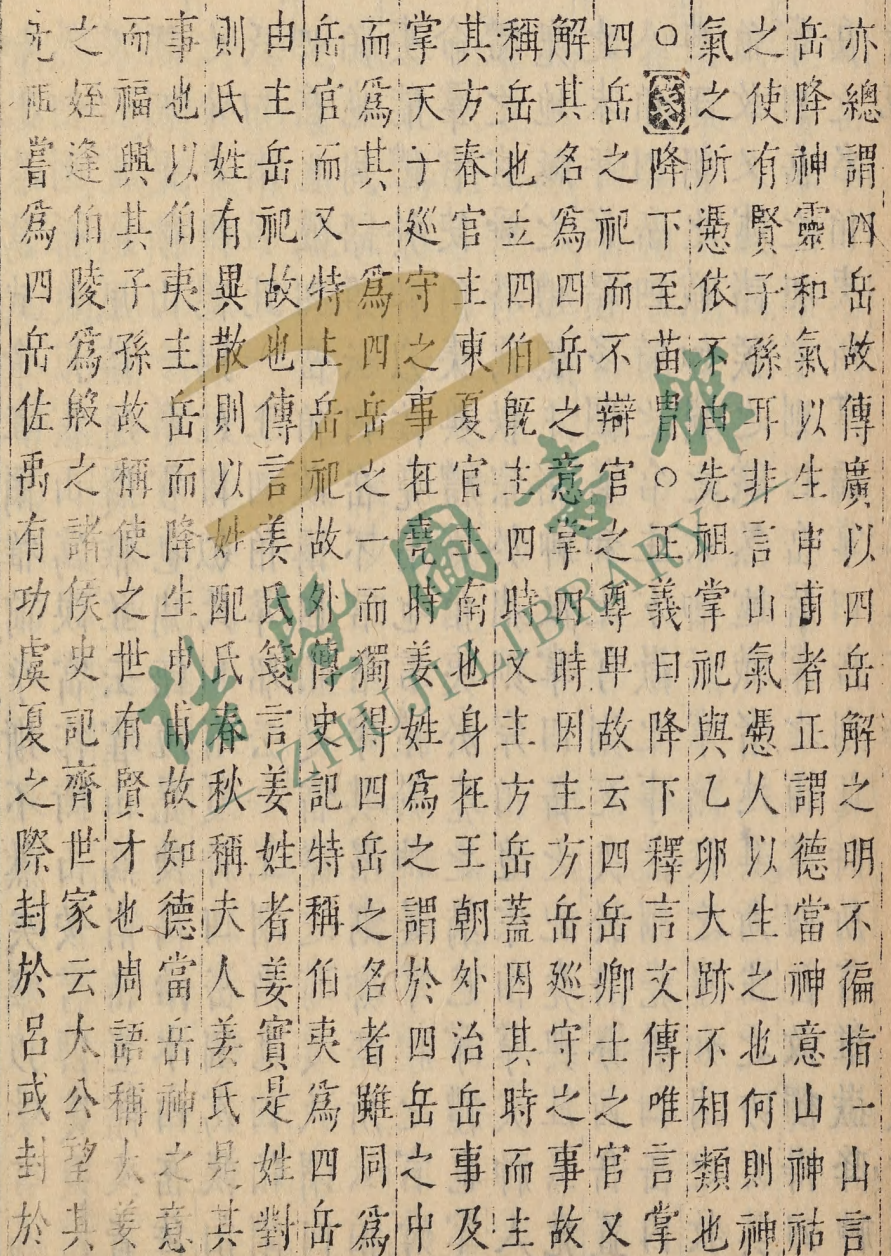 亦總謂四岳故傳廣以四岳解之明不徧指一山言
岳降神靈和氣以生申甫者正謂德當神意山神祜
之使有賢子孫耳非言山氣憑人以生之也何則神
氣之所憑依不由先祖掌祀與乙卵大跡不相類也
○箋降下至苗冑○正義曰降下釋言文傳唯言掌
四岳之祀而不辯官之尊卑故云四岳卿士之官又
解其名爲四岳之意掌四時因主方岳巡守之事故
稱岳也立四伯旣主四時又主方岳蓋因其時而主
其方春官主東夏官主南也身在王朝外治岳事及
掌天子巡守之事在堯時姜姓爲之謂於四岳之中
而爲其一爲四岳之一而獨得四岳之名者雖同爲
岳官而又特主岳祀故外傳史記特稱伯夷爲四岳
由主岳祀故也傳言姜氏箋言姜姓者姜實是姓對
則氏姓有異散則以姓配氏春秋稱夫人姜氏是其
事也以伯夷主岳而降生申甫故知德當岳神之意
而福興其子孫故稱使之世有賢才也周語稱大姜
之姪逢伯陵爲殷之諸侯史記齊世家云太公望其
先祖嘗爲四岳佐禹有功虞夏之際封於呂或封於
ZHUJI LIBRARY